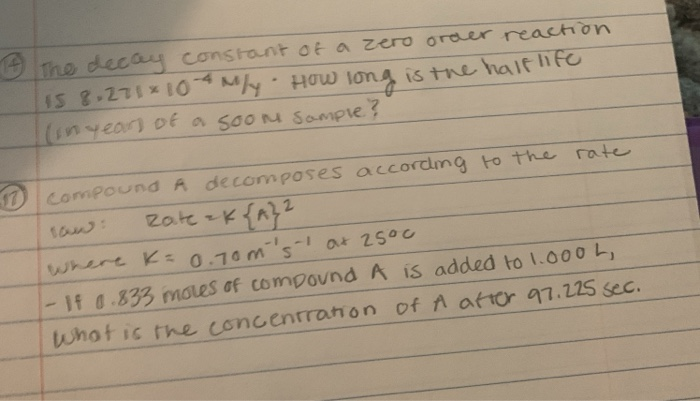 14 The decay constant of a zero order reaction
is 8.271 × 10⁻⁴ M/y. How long is the half life
(in years) of a 500 M sample?
17 compound A decomposes according to the rate
law: Rate = K {A}²
where K = 0.70 m⁻¹s⁻¹ at 25°C
- If 0.833 moles of compound A is added to 1.000 L,
what is the concentration of A after 97.225 sec.